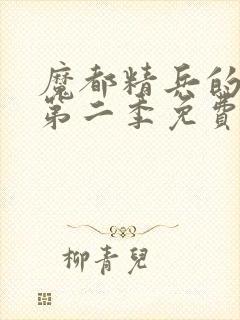 魔都精兵的
第二季免費
柳青兒